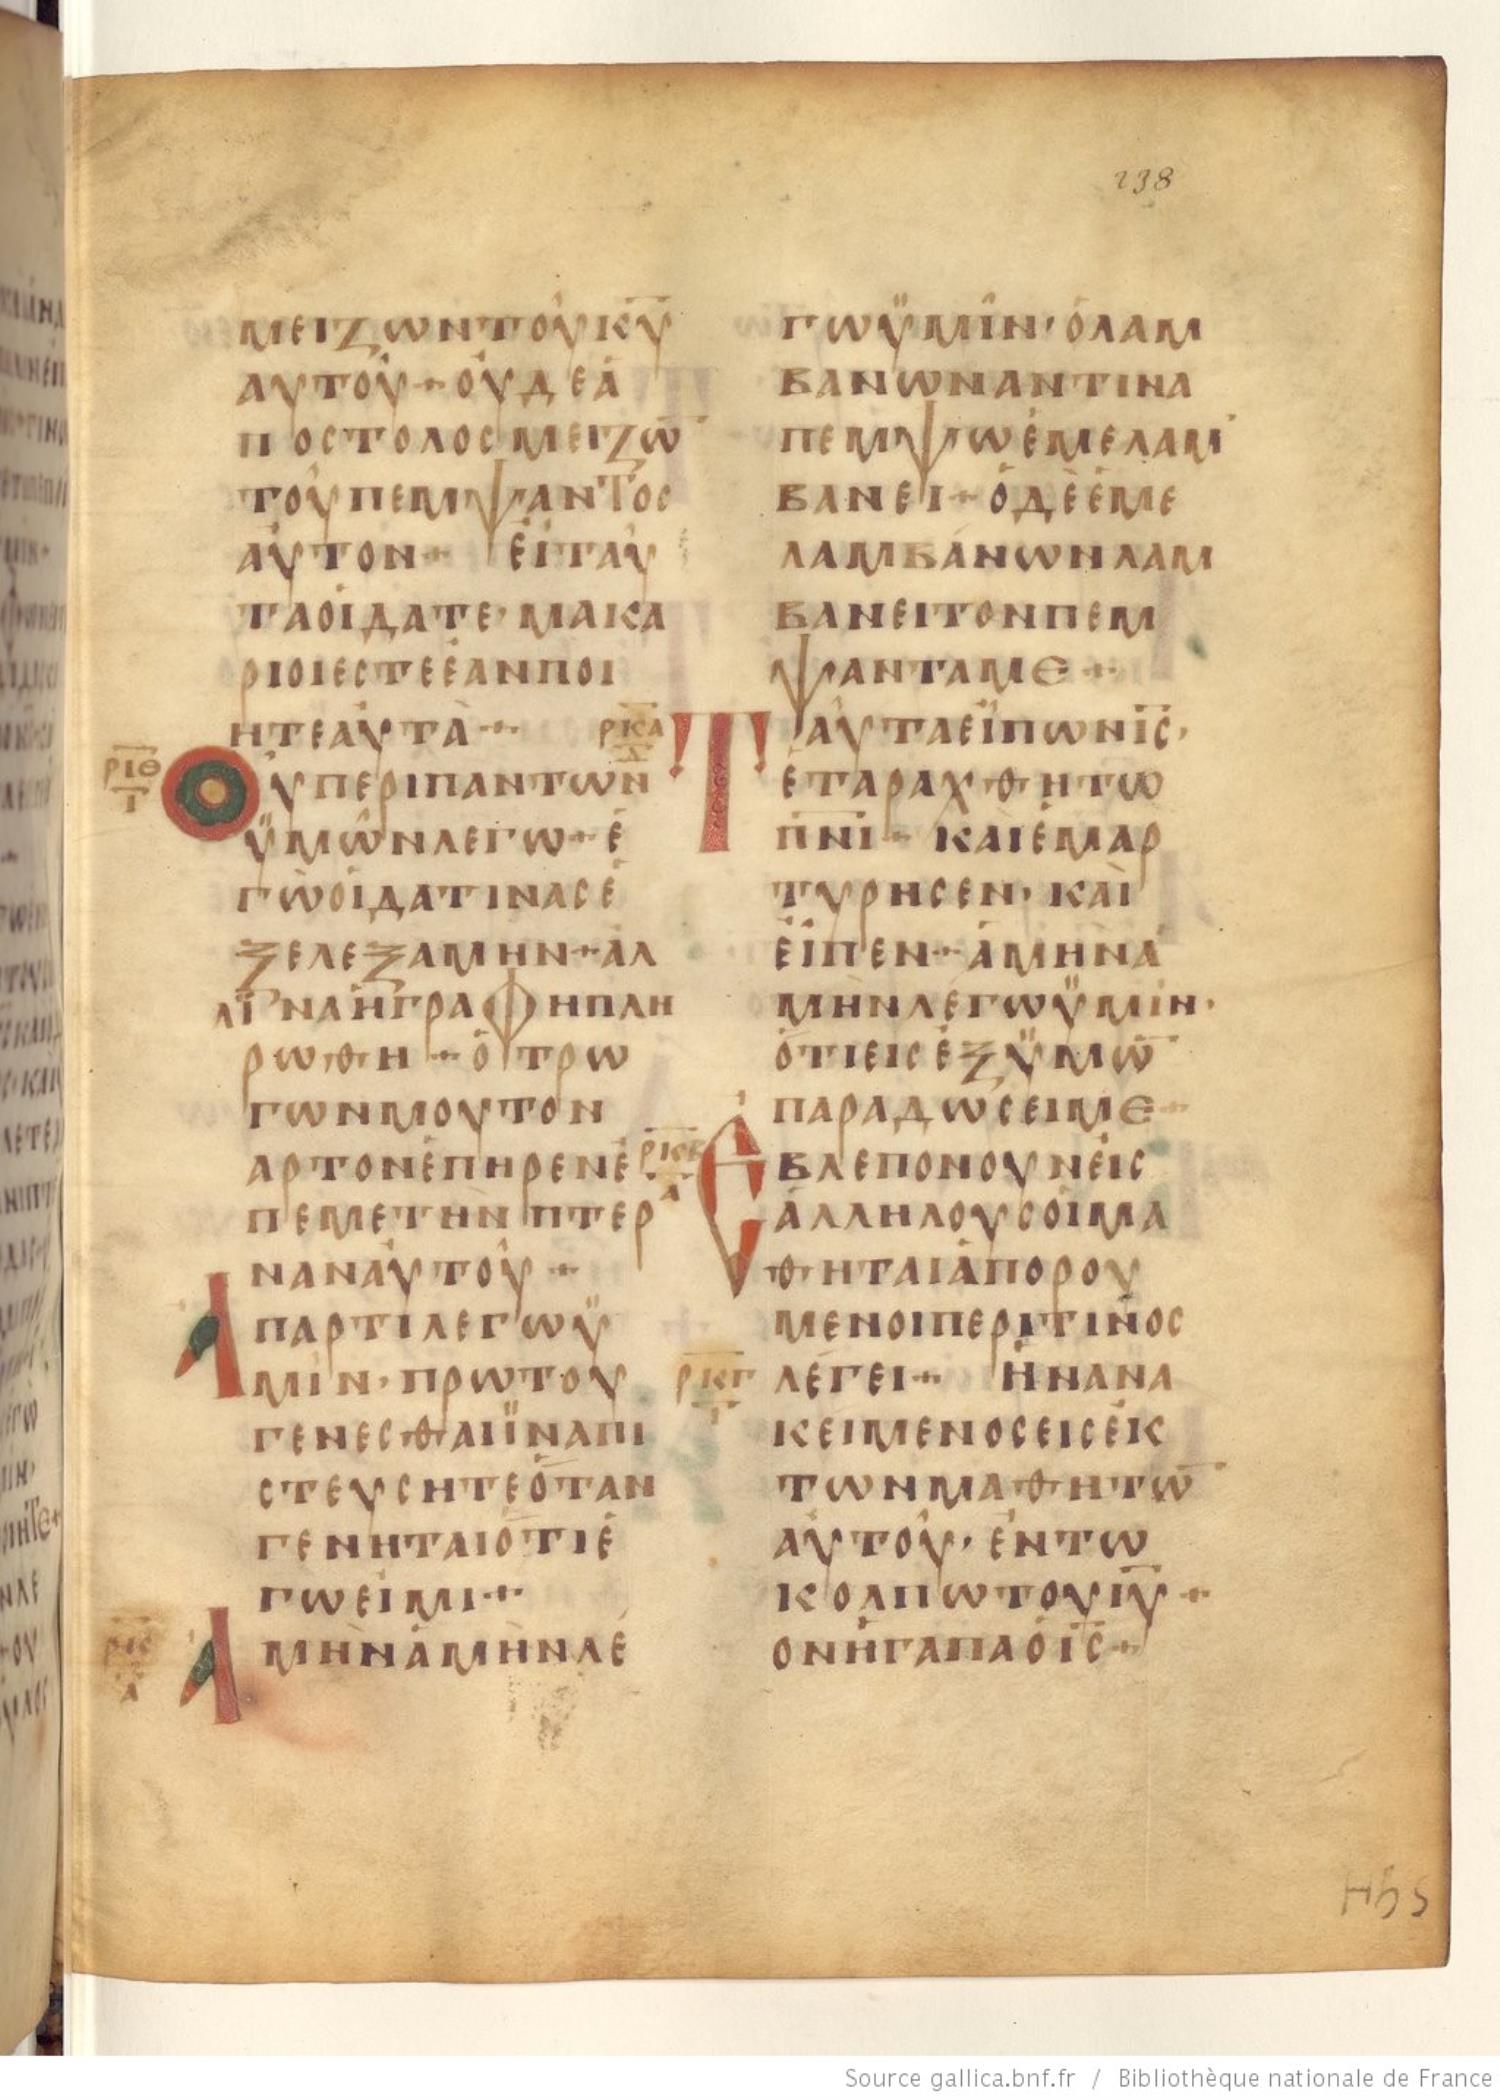 238
ΜΕΙΖΩΝΤΟΥΚΥ
ΑΥΤΟΥ+ΟΥΔΕΑ
ΠΟΣΤΟΛΟΣΜΕΙΖΩ
ΤΟΥΠΕΜΨΑΝΤΟΣ
ΑΥΤΟΝ+ ΕΙΤΑΥ
ΤΑΟΙΔΑΤΕ·ΜΑΚΑ
ΡΙΟΙΕΣΤΕΕΑΝΠΟΙ
ΗΤΕΑΥΤΑ+
ΡΙΘ
Ι
ΟΥΠΕΡΙΠΑΝΤΩΝ
ΫΜΩΝΛΕΓΩ+Ε
ΓΩΟΙΔΑΤΙΝΑΣΕ
ΞΕΛΕΞΑΜΗΝ+ΑΛ
ΛΪΝΑΗΓΡΑΦΗΠΛΗ
ΡΩΘΗ+ΟΤΡΩ
ΓΩΝΜΟΥΤΟΝ
ΑΡΤΟΝΕΠΗΡΕΝΕ
ΠΕΜΕΤΗΝΠΤΕΡ
ΝΑΝΑΥΤΟΥ+
ΑΠΑΡΤΙΛΕΓΩΫ
ΜΙΝ·ΠΡΩΤΟΥ
ΓΕΝΕΣΘΑΙΪΝΑΠΙ
ΣΤΕΥΣΗΤΕΟΤΑΝ
ΓΕΝΗΤΑΙΟΤΙΕ
ΓΩΕΙΜΙ+
ΑΜΗΝΑΜΗΝΛΕ
ΓΩΫΜΙΝ·ΟΛΑΜ
ΒΑΝΩΝΑΝΤΙΝΑ
ΠΕΜΨΩΕΜΕΛΑΜ
ΒΑΝΕΙ+ΟΔΕΕΜΕ
ΛΑΜΒΑΝΩΝΛΑΜ
ΒΑΝΕΙΤΟΝΠΕΜ
ΨΑΝΤΑΜΕ+
ΡΚΑ
Δ
ΤΑΥΤΑΕΙΠΩΝΙΣ·
ΕΤΑΡΑΧΘΗΤΩ
ΠΝΙ+ ΚΑΙΕΜΑΡ
ΤΥΡΗΣΕΝ·ΚΑΙ
ΕΙΠΕΝ+ΑΜΗΝΑ
ΜΗΝΛΕΓΩΫΜΙΝ·
ΟΤΙΕΙΣΕΞΫΜΩ
ΠΑΡΑΔΩΣΕΙΜΕ+
ΡΚΒ
Α
ΕΒΛΕΠΟΝΟΥΝΕΙΣ
ΑΛΛΗΛΟΥΣΟΙΜΑ
ΘΗΤΑΙΑΠΟΡΟΥ
ΜΕΝΟΙΠΕΡΙΤΙΝΟΣ
ΡΚΓ
Ι
ΛΕΓΕΙ+ ΗΝΑΝΑ
ΚΕΙΜΕΝΟΣΕΙΣΕΚ
ΤΩΝΜΑΘΗΤΩ
ΑΥΤΟΥ·ΕΝΤΩ
ΚΟΛΠΩΤΟΥΙΥ+
ΟΝΗΓΑΠΑΟΙΣ+
Source gallica.bnf.fr / Bibliothèque nationale de France